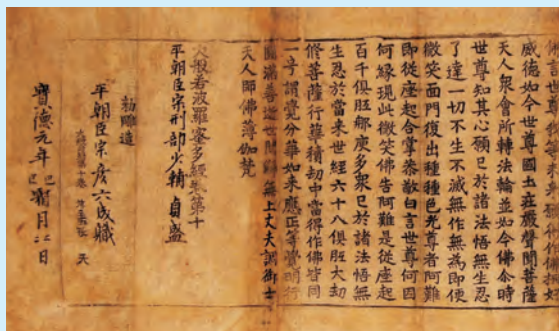 威德如今世尊國土莊嚴聲聞菩薩
天人衆會所轉法輪並如今佛尒時
世尊知其心願已於諸法悟無生忍
了達一切不生不滅無作無為即便
微笑面門復出種種色光尊者阿難
即從座起合掌恭敬白言世尊何因
何緣現此微笑佛告阿難是從座起
百千俱胝那庾多衆已於諸法悟無
生忍於當來世經六十八俱胝大劫
修菩薩行華積劫中當得作佛皆同
一号謂覺分華如來應正等覺明行
圓滿善逝世間解無上丈夫調御士
天人師佛薄伽梵
大般若波羅蜜多經卷第十
平朝臣宗刑部少輔貞盛
勅雕造
平朝臣宗彦六成職
天
寶德元年己巳月二日